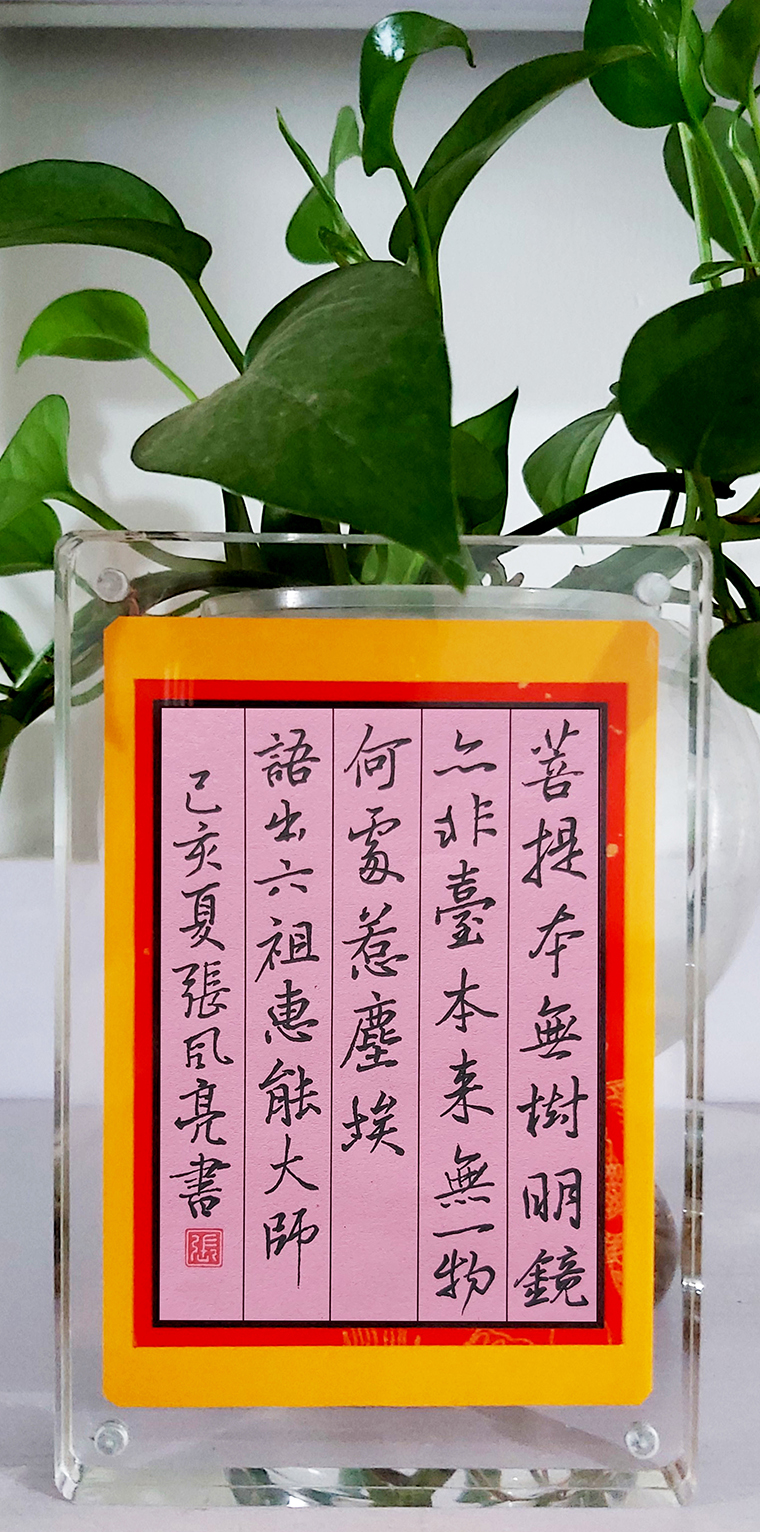 菩提本無樹明鏡
亦非臺本来無一物
何處惹塵埃
語出六祖惠能大師
己亥夏張風亮書
張